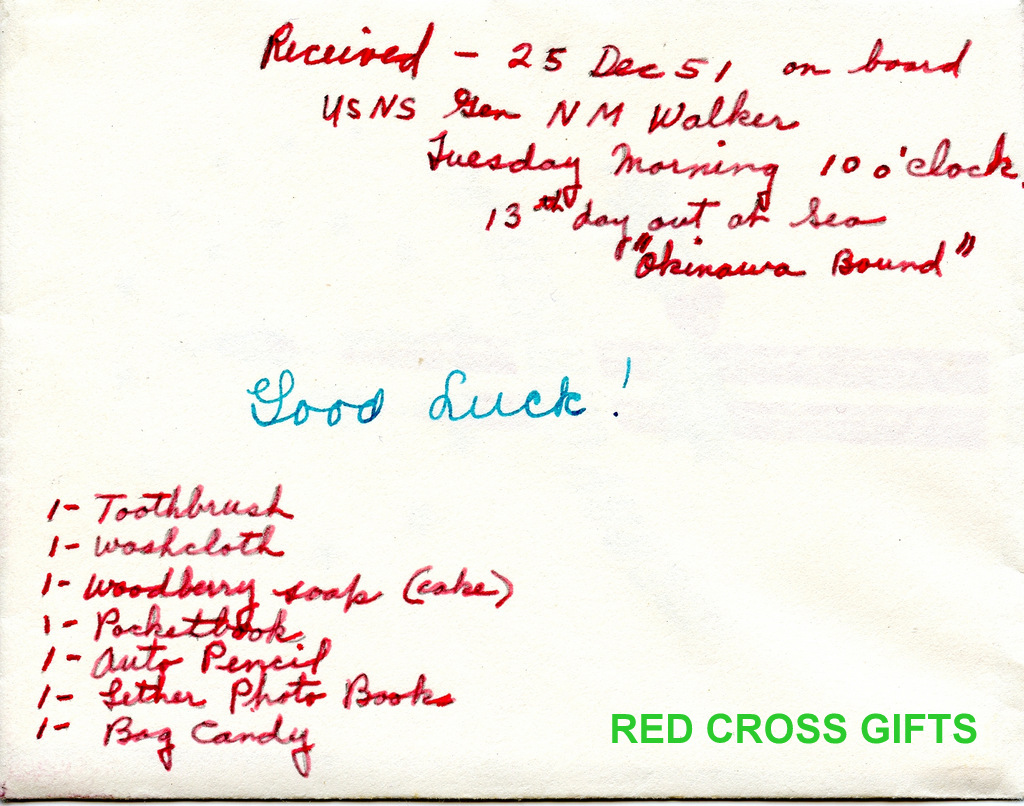 Received - 25 Dec 51 on board
USNS Gen N M Walker
Tuesday Morning 10 o'clock.
13th day out at Sea
"Okinawa Bound"
Good Luck!
1- Toothbrush
1- Washcloth
1- Woodberry soap (cake)
1- Pocketbook
1- Auto Pencil
1- Lether Photo Books
1- Bag Candy
RED CROSS GIFTS